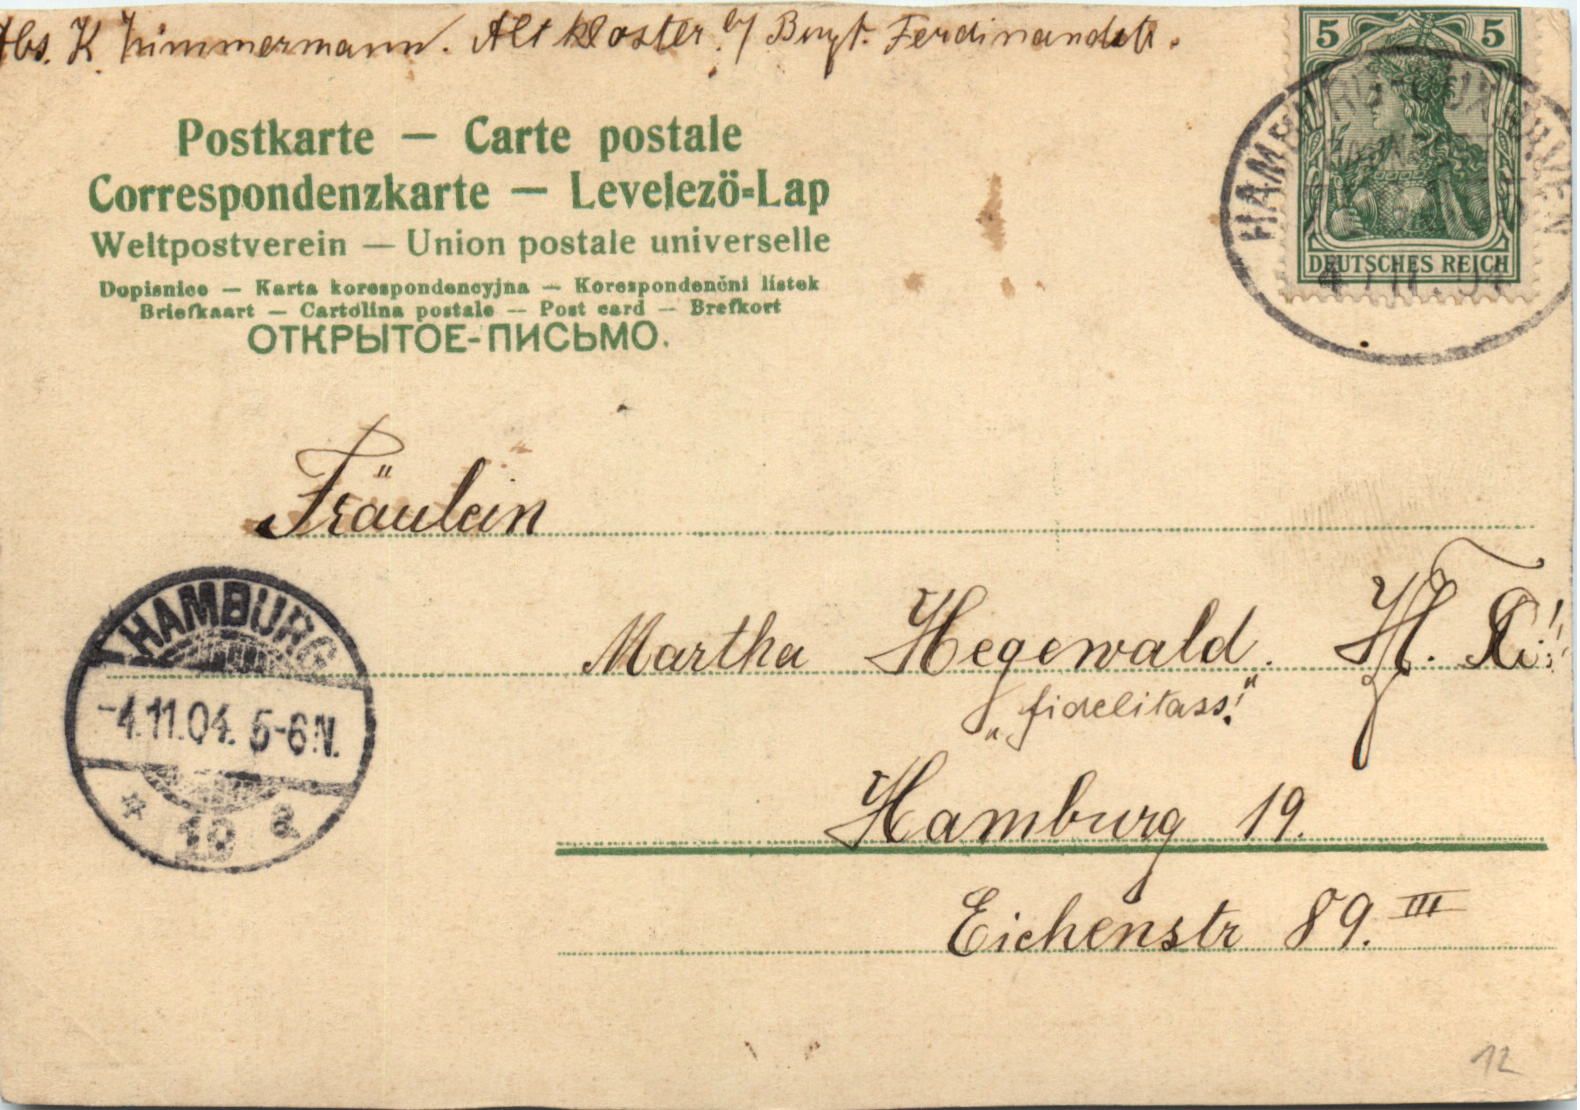 Abs. K. Zimmermann. Altkloster b/ Buxt. Ferdinandstr.
5 5
DEUTSCHES REICH
HAMBURG CUXHAVEN
Postkarte — Carte postale
Correspondenzkarte — Levelezö-Lap
Weltpostverein — Union postale universelle
Dopisnice — Karta korespondencyjna — Korespondenční lístek
Briefkaart — Cartolina postale — Post card — Brefkort
ОТКРЫТОЕ-ПИСЬМО.
Fräulein
Martha Hegewald. H.
"fidelitass!"
Hamburg 19.
Eichenstr 89. III
HAMBURG
-4.11.04. 5-6N.
* 19 a
12